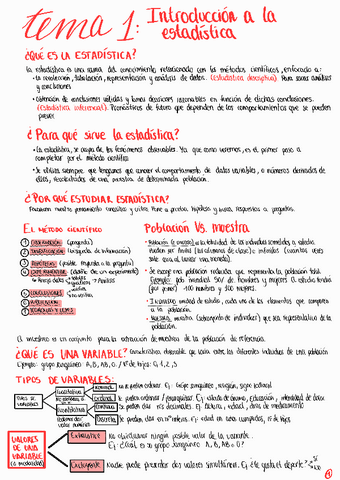 tema 1: Introducción a la
estadística
¿QUÉ ES LA ESTADÍSTICA?
La estadística es una rama del conocimiento relacionada con los métodos científicos, enfocada a:
· La recolección, tabulación, representación y análisis de datos. (Estadística descriptiva). Para sacar análisis
y conclusiones
· Obtención de conclusiones válidas y tomar decisiones razonables en función de dichas conclusiones.
(Estadística inferencial). Pronósticos de futuro que dependen de los comportamientos que se pueden
prever
¿Para qué sirve la estadística?
· La estadística, se ocupa de los fenómenos observables. Ya que como veremos, es el primer paso a
completar por el método científico
· Se utiliza siempre que tengamos que conocer el comportamiento de datos variables, o números derivados de
ellos, recolectados de una muestra de determinada población.
¿POR QUÉ ESTUDIAR ESTADÍSTICA?
pensamiento científico y crítico. Pone a prueba, hipótesis y busca respuestas a preguntas.
EL MÉTODO CIENTÍFICO
Población Vs. muestra
① OBSERVACIÓN (pregunta)
② INVESTIGACIÓN (búsqueda de información)
③ HIPÓTESIS (posible respuesta a la pregunta)
④ EXPERIMENTAR (diseño de un experimento)
⑤ CONCLUSIONES
⑥ PUBLICACIÓN
· Población (o universo) es la totalidad de los individuos sometidos a estudio
pueden ser finitas (los alumnos de clase) o infinitas (cuantas veces
sale cara al lanzar una moneda).
· Se escoge una población reducida que represente la población total.
Ejemplo: 50% de hombres y mujeres. El estudio tendrá
(por poner) 100 hombres y 100 mujeres.
· Individuo: unidad de estudio, cada uno de los elementos que componen
a la población.
· Muestra: muestra (subconjunto de individuos) que sea representativa de la
población.
El muestreo es un conjunto para la extracción de muestra de la población de referencia.
¿QUÉ ES UNA VARIABLE? Característica observable que varía entre los diferentes individuos de una población
Ejemplo: grupo sanguíneo: A, B, AB, O / Nº de hijos: 0, 1, 2, 3
TIPOS DE VARIABLES:
TIPOS DE VARIABLES
Cualitativa
Cuantitativa
Nominal No se pueden ordenar. Ej: Grupo sanguíneo, religión, sexo
Ordinal Se pueden ordenar / jerarquizar. Ej: nivel de idioma, educación, intensidad de dolor
Continua Se pueden dar nos decimales. Ej: altura, edad, dosis de medicamento
Discreta Se pueden dar en nos enteros. Ej: edad en años cumplidos, nº de hijos
VALORES DE UNA VARIABLE (o modalidad)
Exhaustivo No olvidarnos ningún posible valor de la variante.
Ej: ¿Cuál es su grupo sanguíneo: A, B, AB o O?
Excluyente Nadie puede presentar dos valores simultáneos. Ej: ¿Te gusta el deporte? Sí No